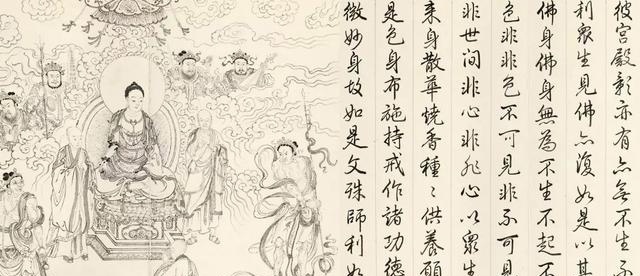 彼宮殿影亦有亦无不生不
利衆生見佛亦復如是以其
佛身佛身無為不生不起不
色非非色不可見非不可見
非世间非心非非心以衆生
来身散華燒香種〻供養願
是色身布施持戒作諸功德
微妙身故如是文殊師利如